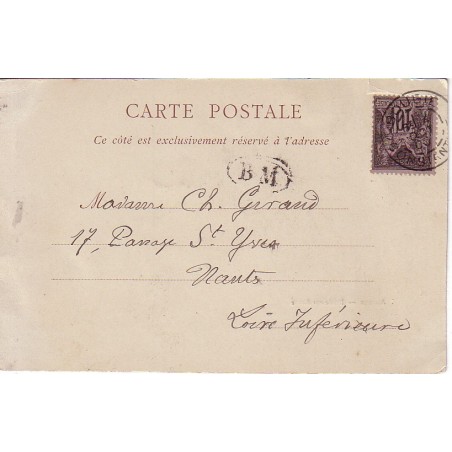 CARTE POSTALE
Ce côté est exclusivement réservé à l'adresse
BM
Madame Ch. Geraud
17, Passage St Yves
Nantes
Loire Inférieure